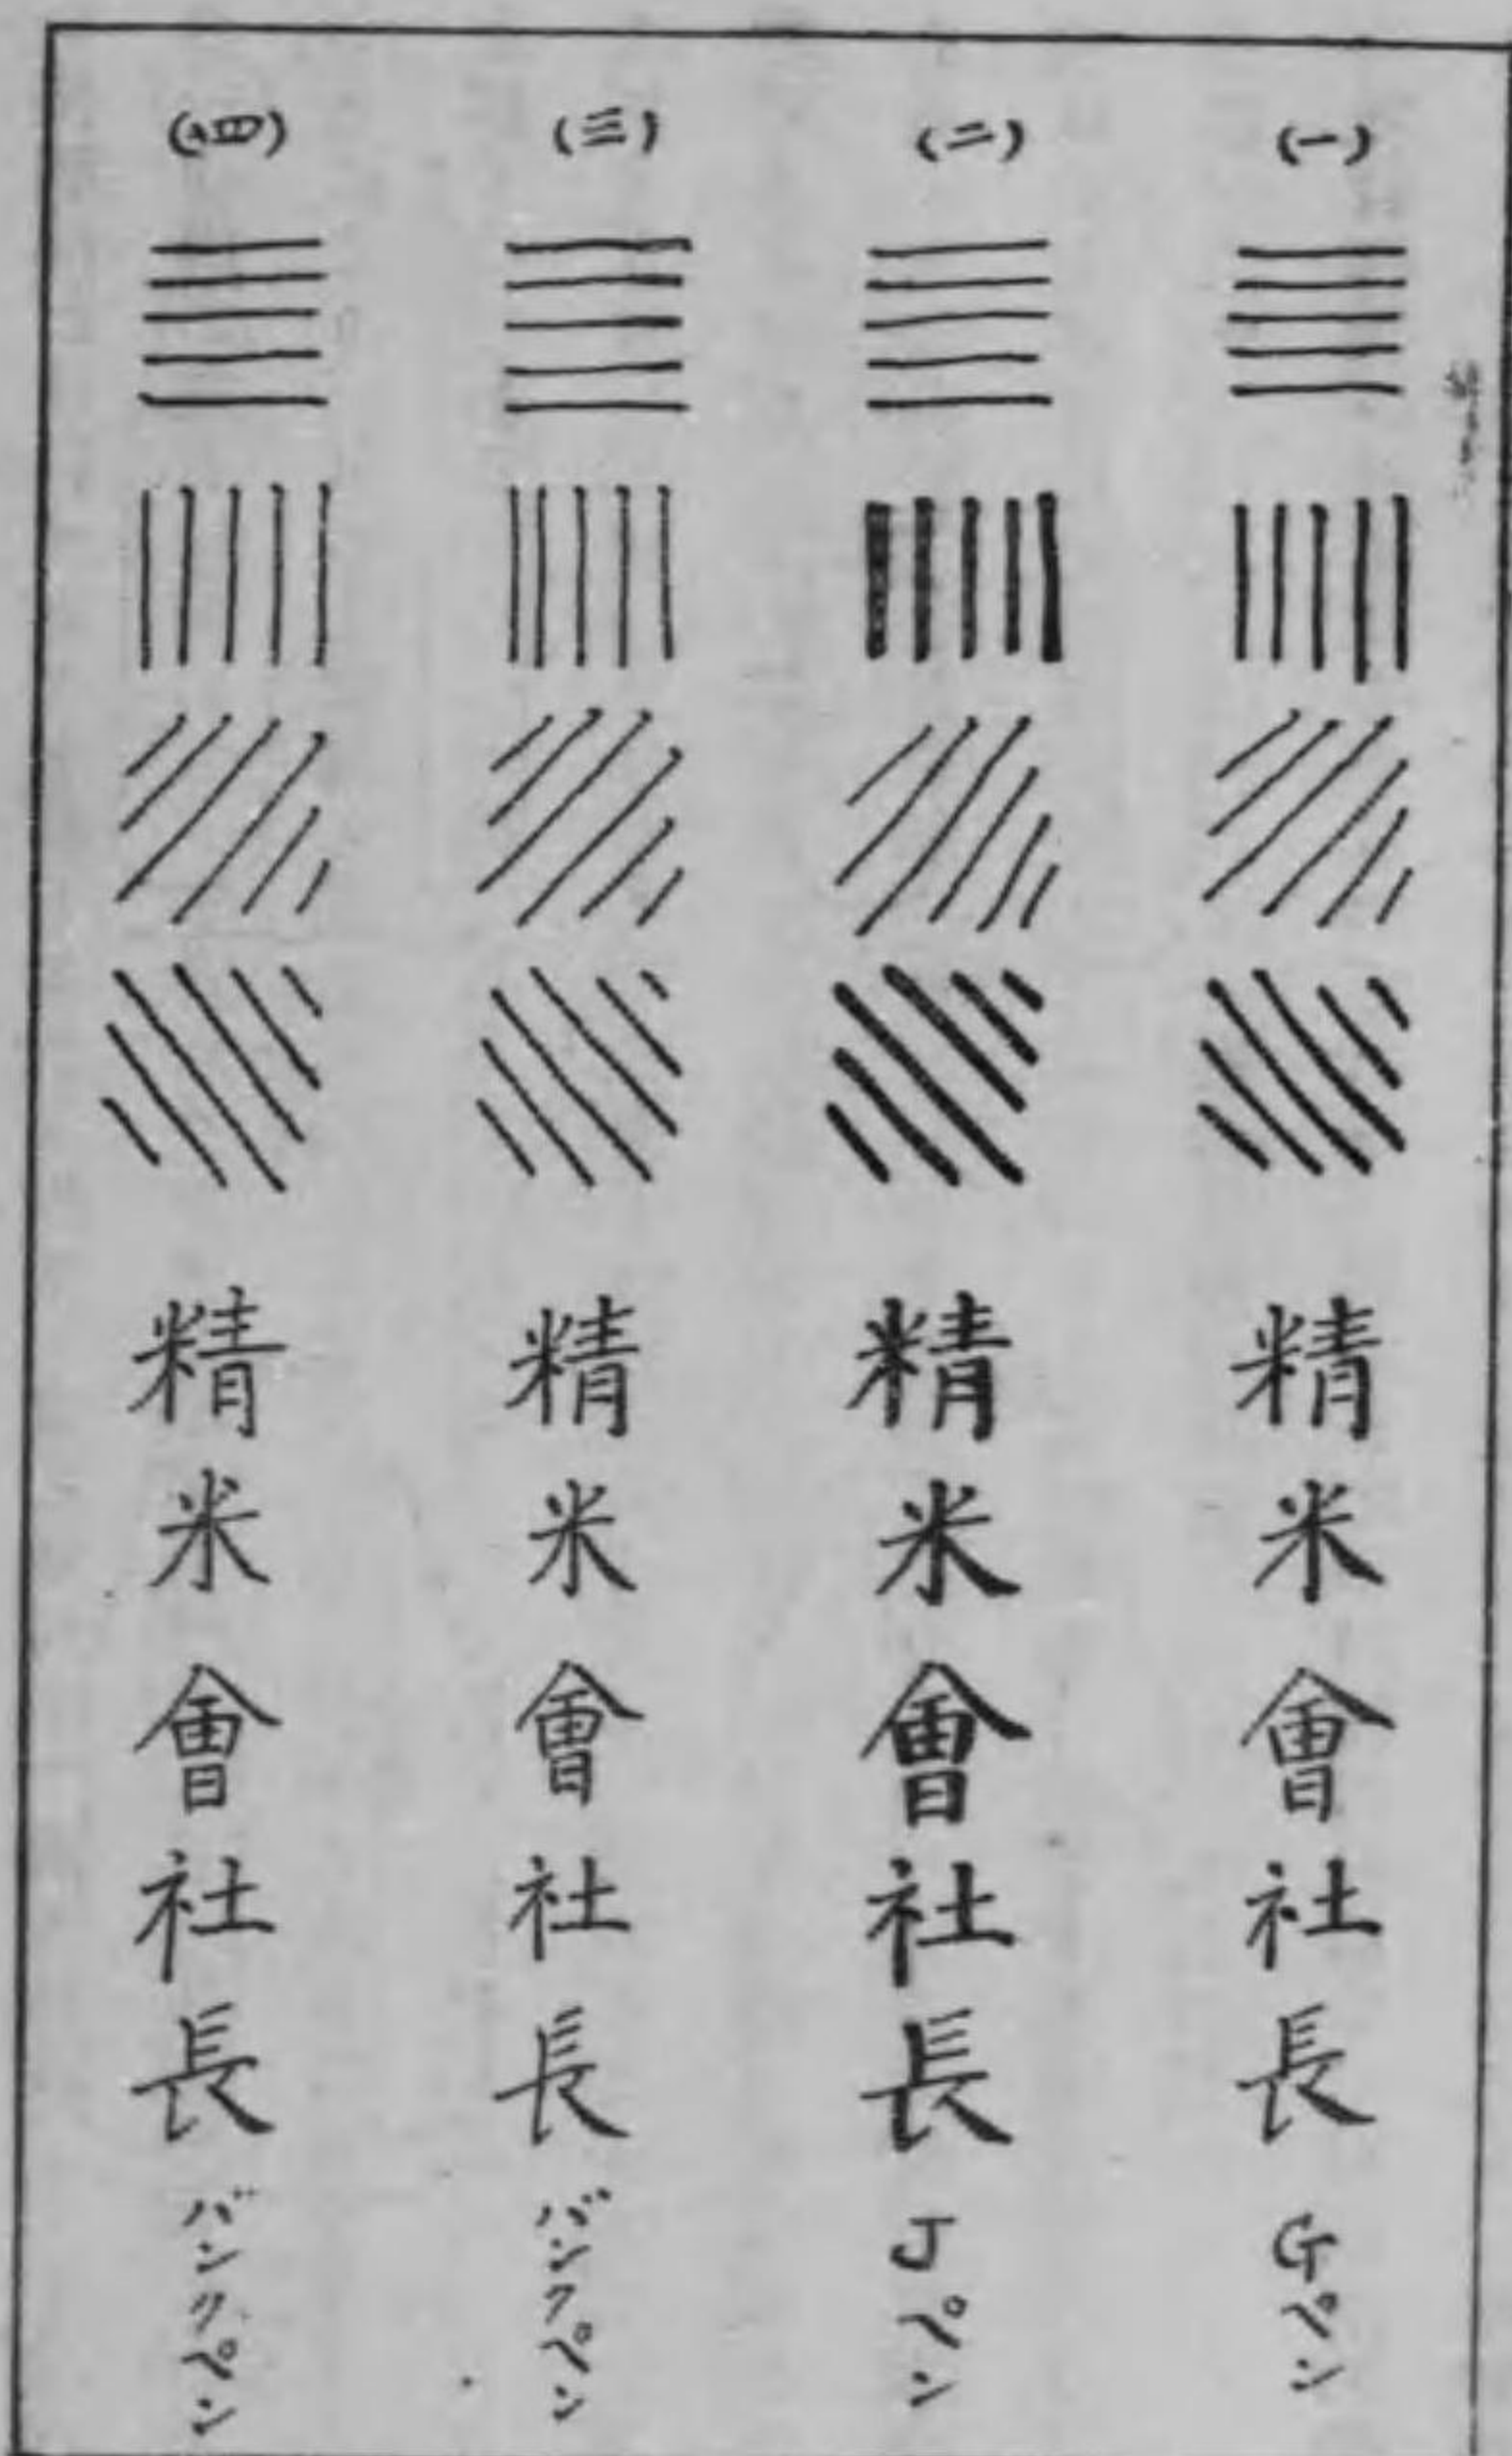 (一)
精米會社長
Gペン
(二)
精米會社長
Jペン
(三)
精米會社長
バンクペン
(四)
精米會社長
バンクペン